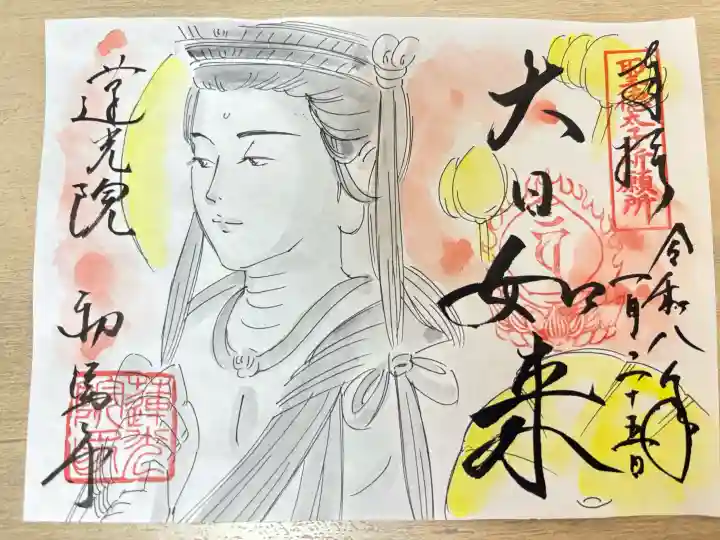 奉拝
聖徳太子祈願所
令和八年
一月二十五日
大日如来
蓮光院
初馬寺
蓮光院印